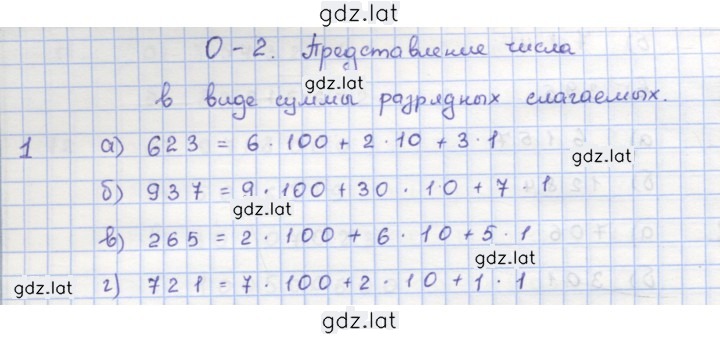 gdz.lat
О-2. Представление числа
gdz.lat
в виде суммы разрядных слагаемых.
1 а) 623 = 6 · 100 + 2 · 10 + 3 · 1
gdz.lat
б) 937 = 9 · 100 + 30 · 10 + 7 · 1
gdz.lat
в) 265 = 2 · 100 + 6 · 10 + 5 · 1
gdz.lat
gdz.lat г) 721 = 7 · 100 + 2 · 10 + 1 · 1
gdz.lat